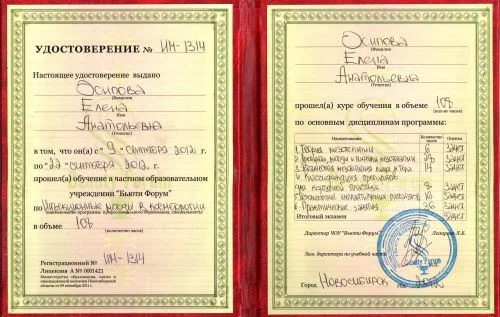 УДОСТОВЕРЕНИЕ № ИМ-1314
Настоящее удостоверение выдано
Осипова
(Фамилия)
Елена
(Имя)
Анатольевна
(Отчество)
в том, что он(а) с "9" сентября 2012 г.
по "22" сентября 2012 г.
прошел(а) обучение в частном образовательном
учреждении "Бьюти Форум"
по Инъекционные методы в косметологии
(наименование программы профессионального образования, специальность)
в объеме 108
(количество часов)
Регистрационный № ИМ-1314
Лицензия А № 0001421
Министерства образования, науки и
инновационной политики Новосибирской
области от 09 сентября 2011 г.
Осипова
(Фамилия)
Елена
(Имя)
Анатольевна
(Отчество)
прошел(а) курс обучения в объеме 108
(кол-во часов)
по основным дисциплинам программы:
Наименование Количество часов Оценка
1. Теория мезотерапии 6 зачет
зачет
14 зачет
4. Классификация препаратов
для контурной пластики 8 зачет
10 зачет
6. Практические занятия зачет
Итоговый экзамен зачет
Директор ЧОУ "Бьюти Форум" Лазарева Л.Б.
Зам. директора по учебной части
Город Новосибирск 2012